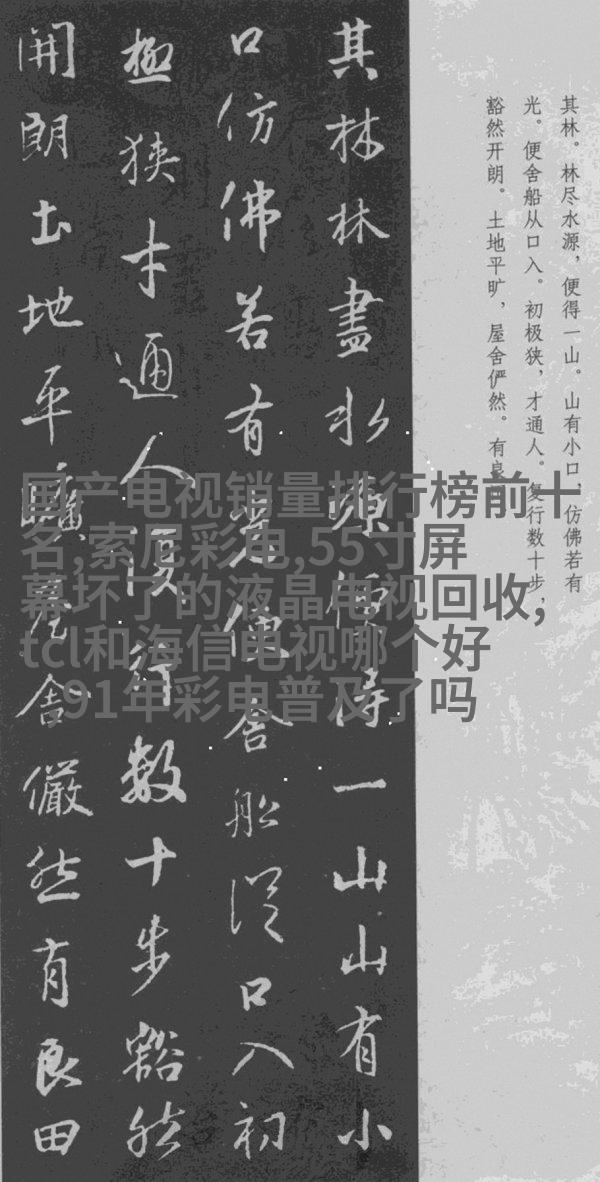 其林。林尽水源，便得一山。山有小口，仿佛若有
光。便舍船从口入。初极狭，才通人。复行数十步，
豁然开朗。土地平旷，屋舍俨然。有良
其林林盡水源便得一山山有小
口仿佛若有光便舍船從口入初
極狹才通人復行數十步豁然
開朗土地平曠屋舍儼然有良田
国产电视销量排行榜前十
名,索尼彩电,55寸屏
幕坏了的液晶电视回收,
tcl和海信电视哪个好
,91年彩电普及了吗